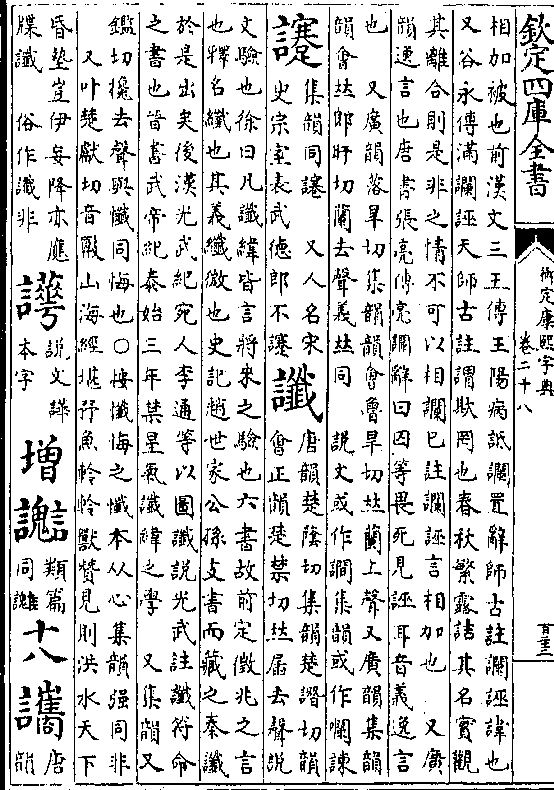 欽定四庫全書
御定康熙字典
卷二十八
相加被也前漢文三王傳王陽病詆讕置辭師古註讕誣諱也
又谷永傳滿讕誣天師古註謂欺罔也春秋繁露詰其名實觀
其離合則是非之情不可以相讕已註讕誣言相加也　又廣
韻逸言也唐書張亮傳亮讕辭曰囚等畏死見誣耳音義逸言
也　又廣韻落旱切集韻韻會魯旱切𠀤蘭上聲又廣韻集韻
韻會𠀤郎旰切蘭去聲義𠀤同　說文或作讇集韻或作㘓諫
讏集韻同讆　又人名宋史宗室表武德郎不讏
讖唐韻楚蔭切集韻楚譖切韻會正韻楚禁切𠀤㞕去聲說
文驗也徐曰凡讖緯皆言將來之驗也六書故前定徵兆之言
也釋名纖也其義纖微也史記趙世家公孫支書而藏之秦讖
於是出矣後漢光武紀宛人李通等以圖讖說光武註讖符命
之書也晉書武帝紀泰始三年禁星氣讖緯之學　又集韻叉
鑑切攙去聲與懺同悔也○按懺悔之懺本从心集韻强同非
又叶楚獻切音㬠山海經堪㐨魚軨軨獸贊見則洪水天下
昏墊豈伊妄降亦應牒讖　俗作䜟非
譁說文譁本字
增讂類篇同讎
十八讗唐韻